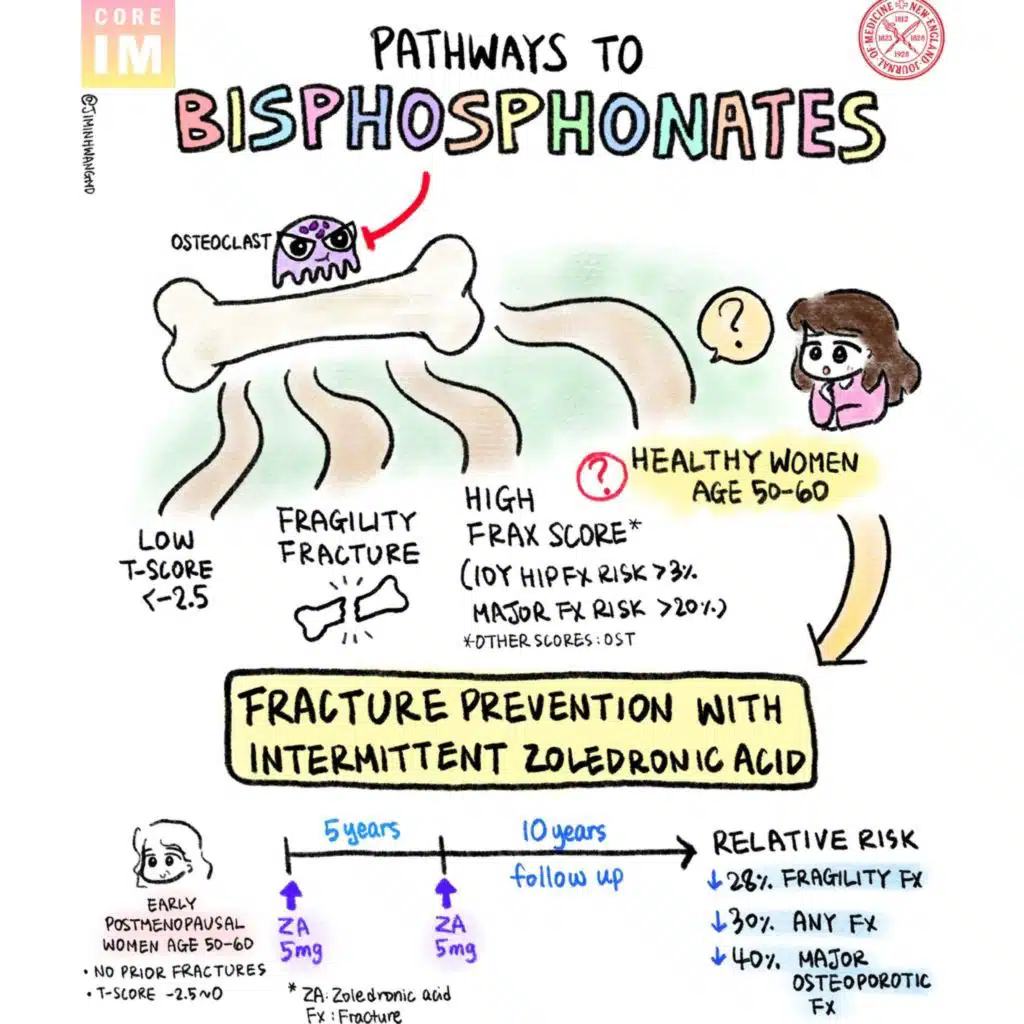 CORE
IM
@JIMINHWANGMD
PATHWAYS TO
BISPHOSPHONATES
NEW ENGLAND JOURNAL OF MEDICINE
1812
1823 1828
1928
OSTEOCLAST
?
?
HEALTHY WOMEN
AGE 50-60
LOW
T-SCORE
<-2.5
FRAGILITY
FRACTURE
HIGH
FRAX SCORE*
(10Y HIP FX RISK >3%
MAJOR FX RISK >20%)
*OTHER SCORES: OST
FRACTURE PREVENTION WITH
INTERMITTENT ZOLEDRONIC ACID
EARLY
POSTMENOPAUSAL
WOMEN AGE 50-60
• NO PRIOR FRACTURES
• T-SCORE -2.5~0
5 years
10 years
follow up
ZA
5mg
ZA
5mg
* ZA: Zoledronic acid
Fx : Fracture
RELATIVE RISK
↓28% FRAGILITY FX
↓30% ANY FX
↓40% MAJOR
OSTEOPOROTIC
FX